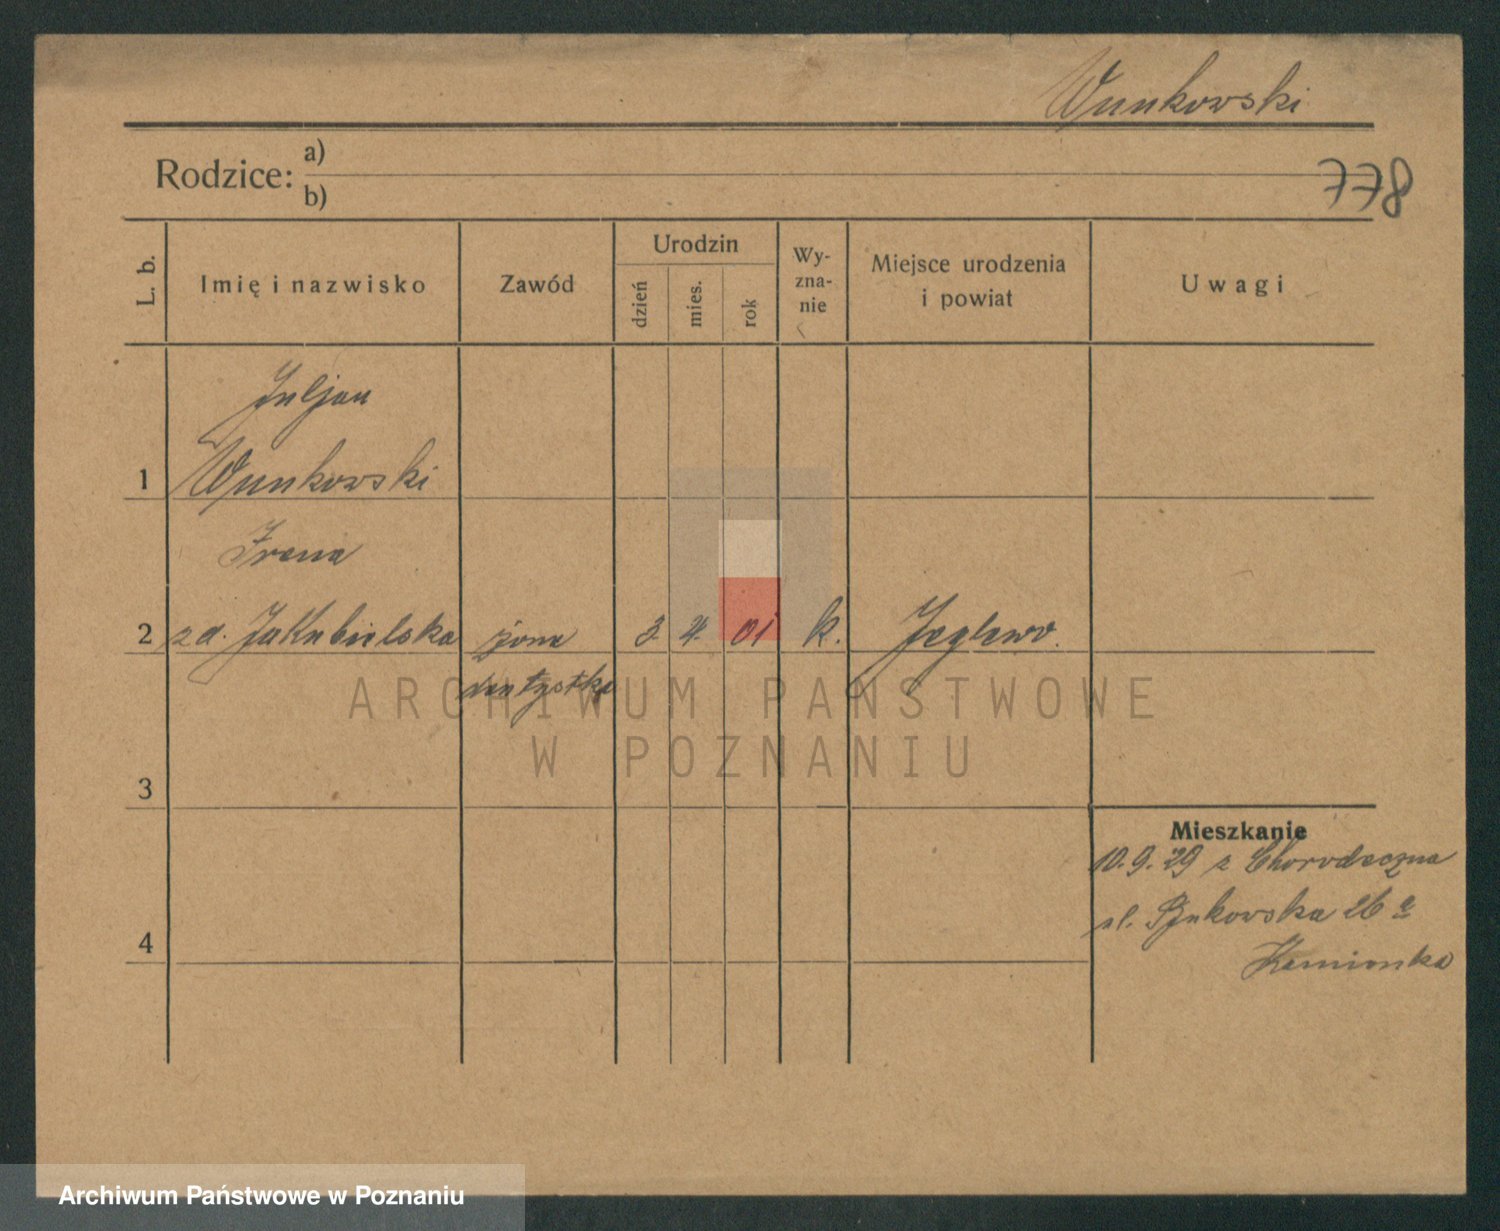 Wunkowski
Rodzice:
a)
b)
778
L. b.
Imię i nazwisko
Zawód
Urodzin
dzień
mies.
rok
Wy-
zna-
nie
Miejsce urodzenia
i powiat
Uwagi
Juljan
1
Wunkowski
Irena
2 zd. Jakubielska żona 3. 4. 01 k.
dentystka
ARCHIWUM PAŃSTWOWE
W POZNANIU
3
Mieszkanie
10.9.29 z
ul. 26a
4
Kamionka
Archiwum Państwowe w Poznaniu